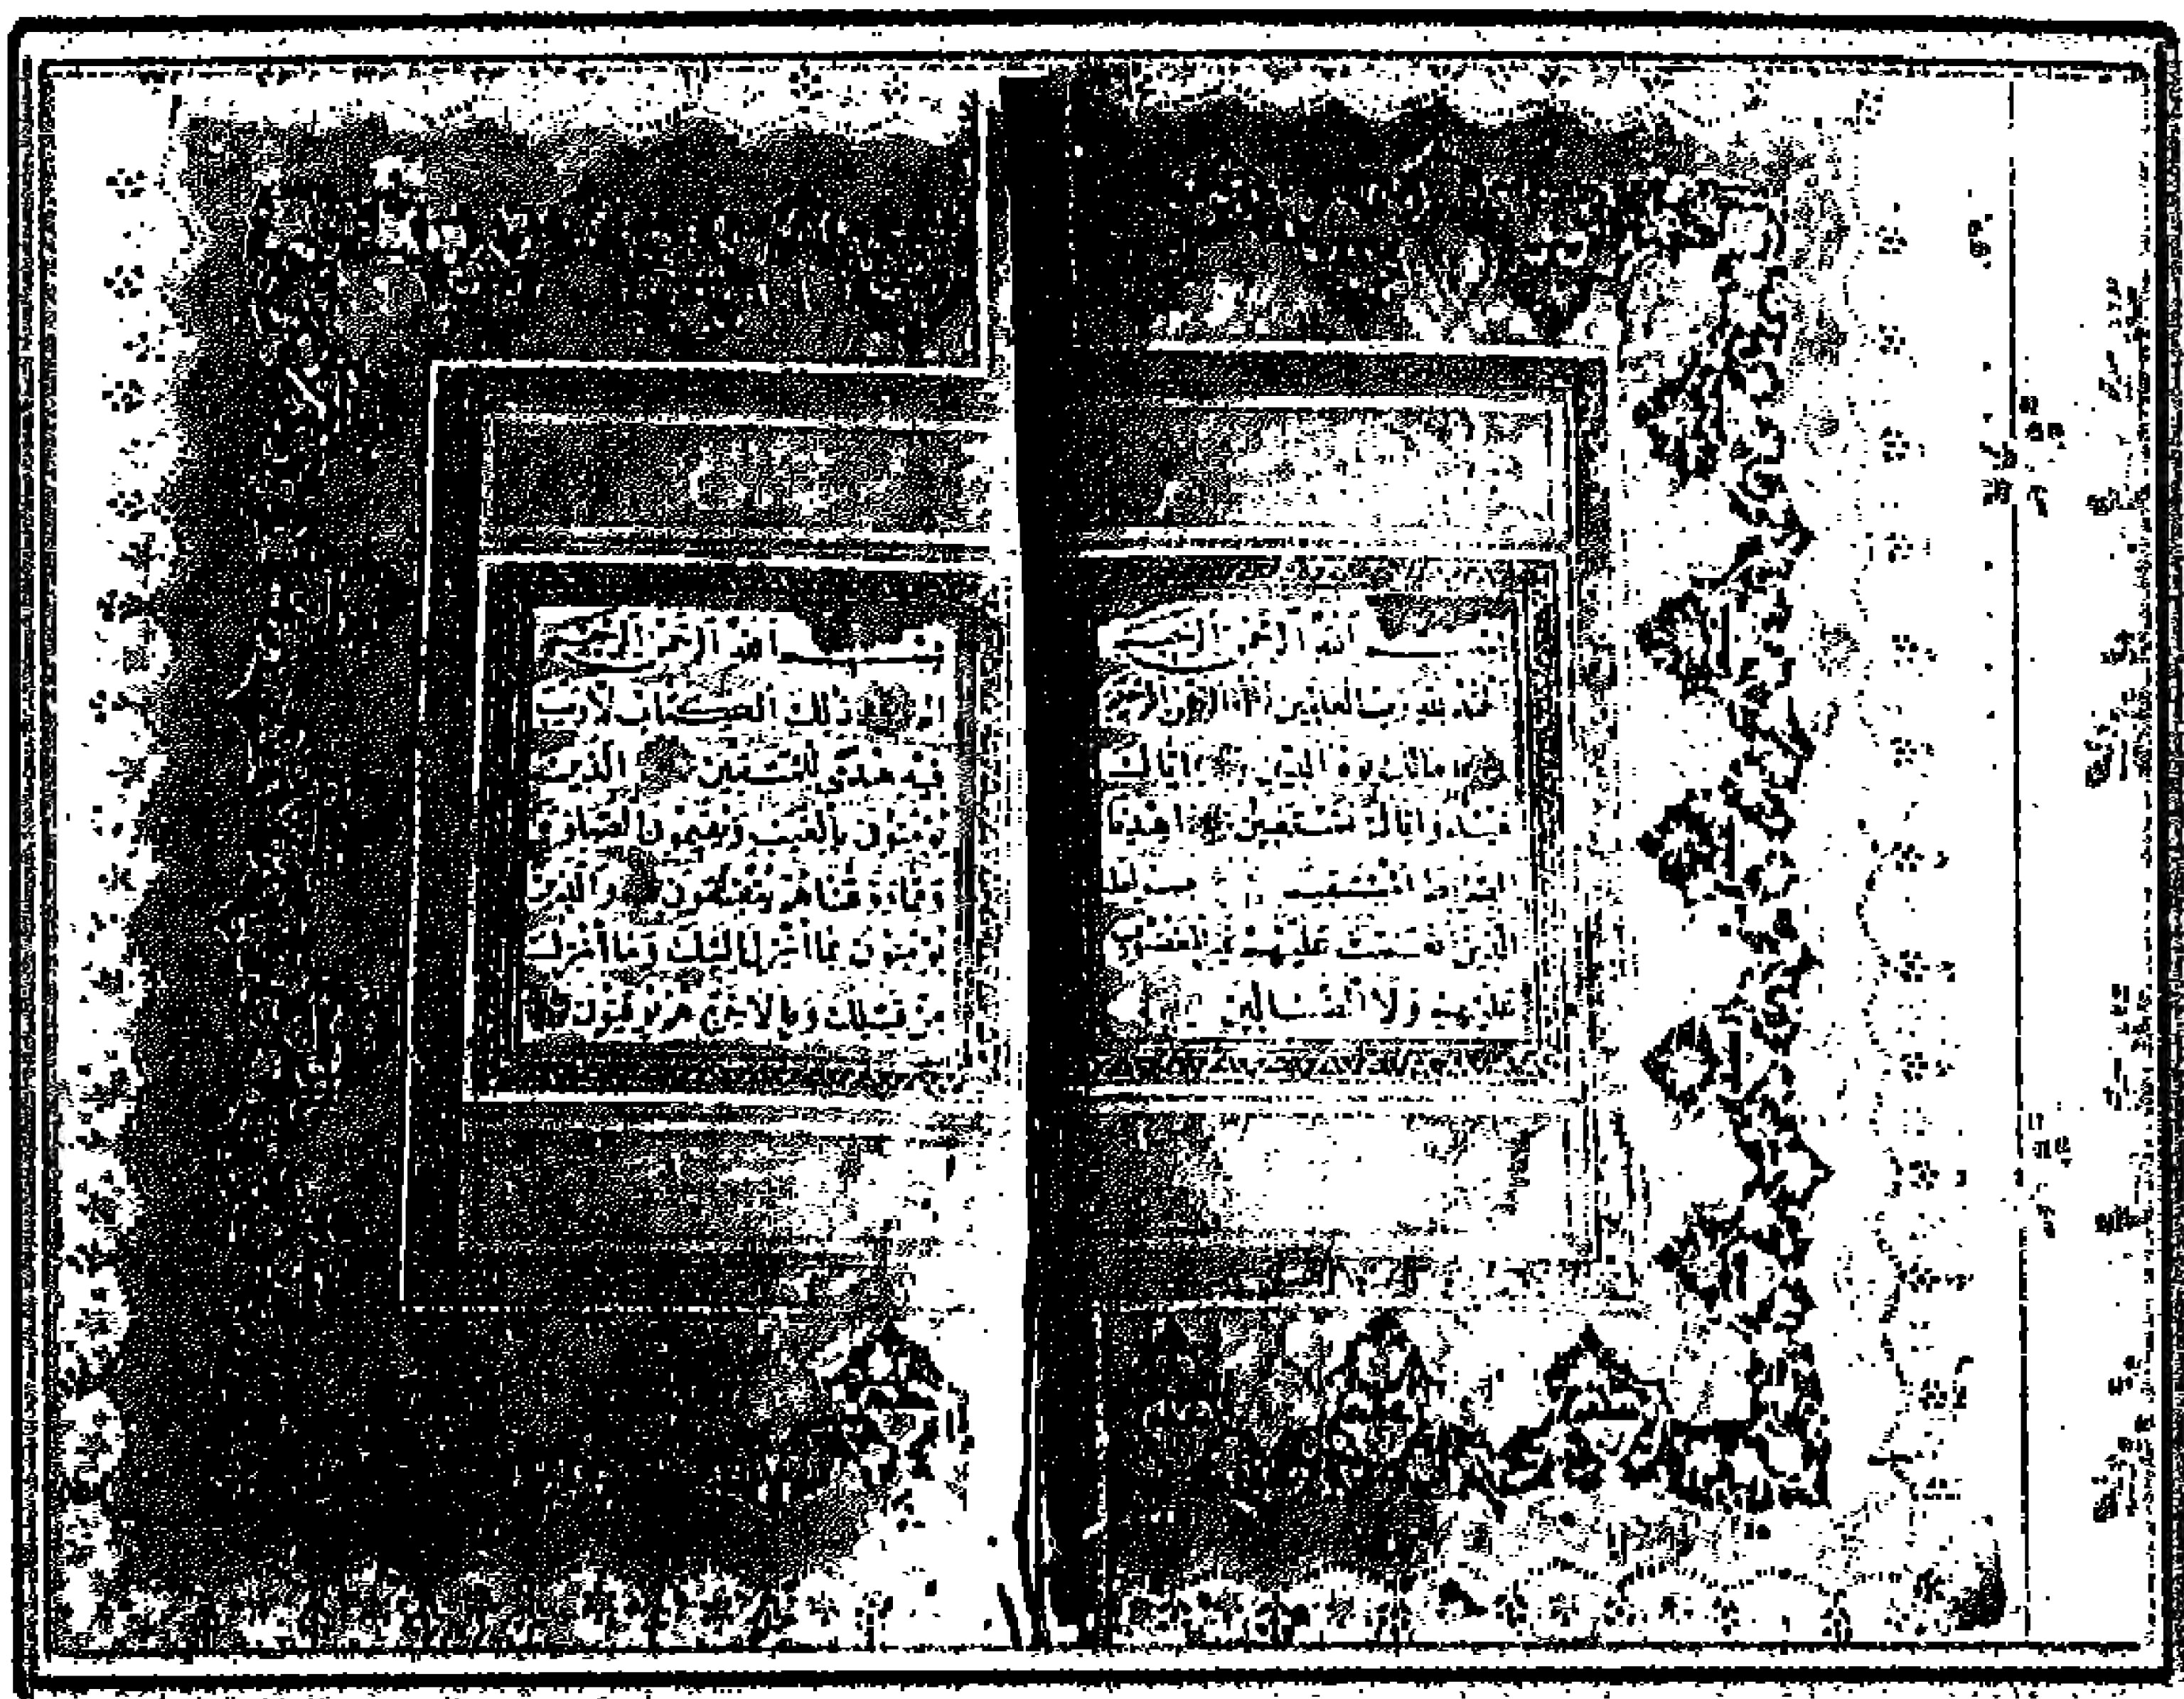 بسم الله الرحمن الرحيم
الحمد لله رب العالمين الرحمن الرحيم
مالك يوم الدين اياك
نعبد واياك نستعين اهدنا
الصراط المستقيم صراط
الذين انعمت عليهم غير المغضوب
عليهم ولا الضالين
بسم الله الرحمن الرحيم
الم ذلك الكتاب لا ريب
فيه هدى للمتقين الذين
يؤمنون بالغيب ويقيمون الصلوة
ومما رزقناهم ينفقون والذين
يؤمنون بما أنزل اليك وما أنزل
من قبلك وبالآخرة هم يوقنون